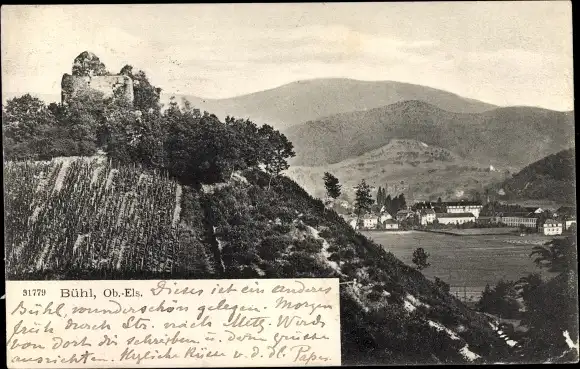 31779 Bühl, Ob.-Els. Dieses ist ein anderes
Bühl, wunderschön gelegen. Morgen
früh durch Str. nach Metz. Werde
von dort dir schreiben u. dem
ausrichten. Küsse v. d. dl. Papa.